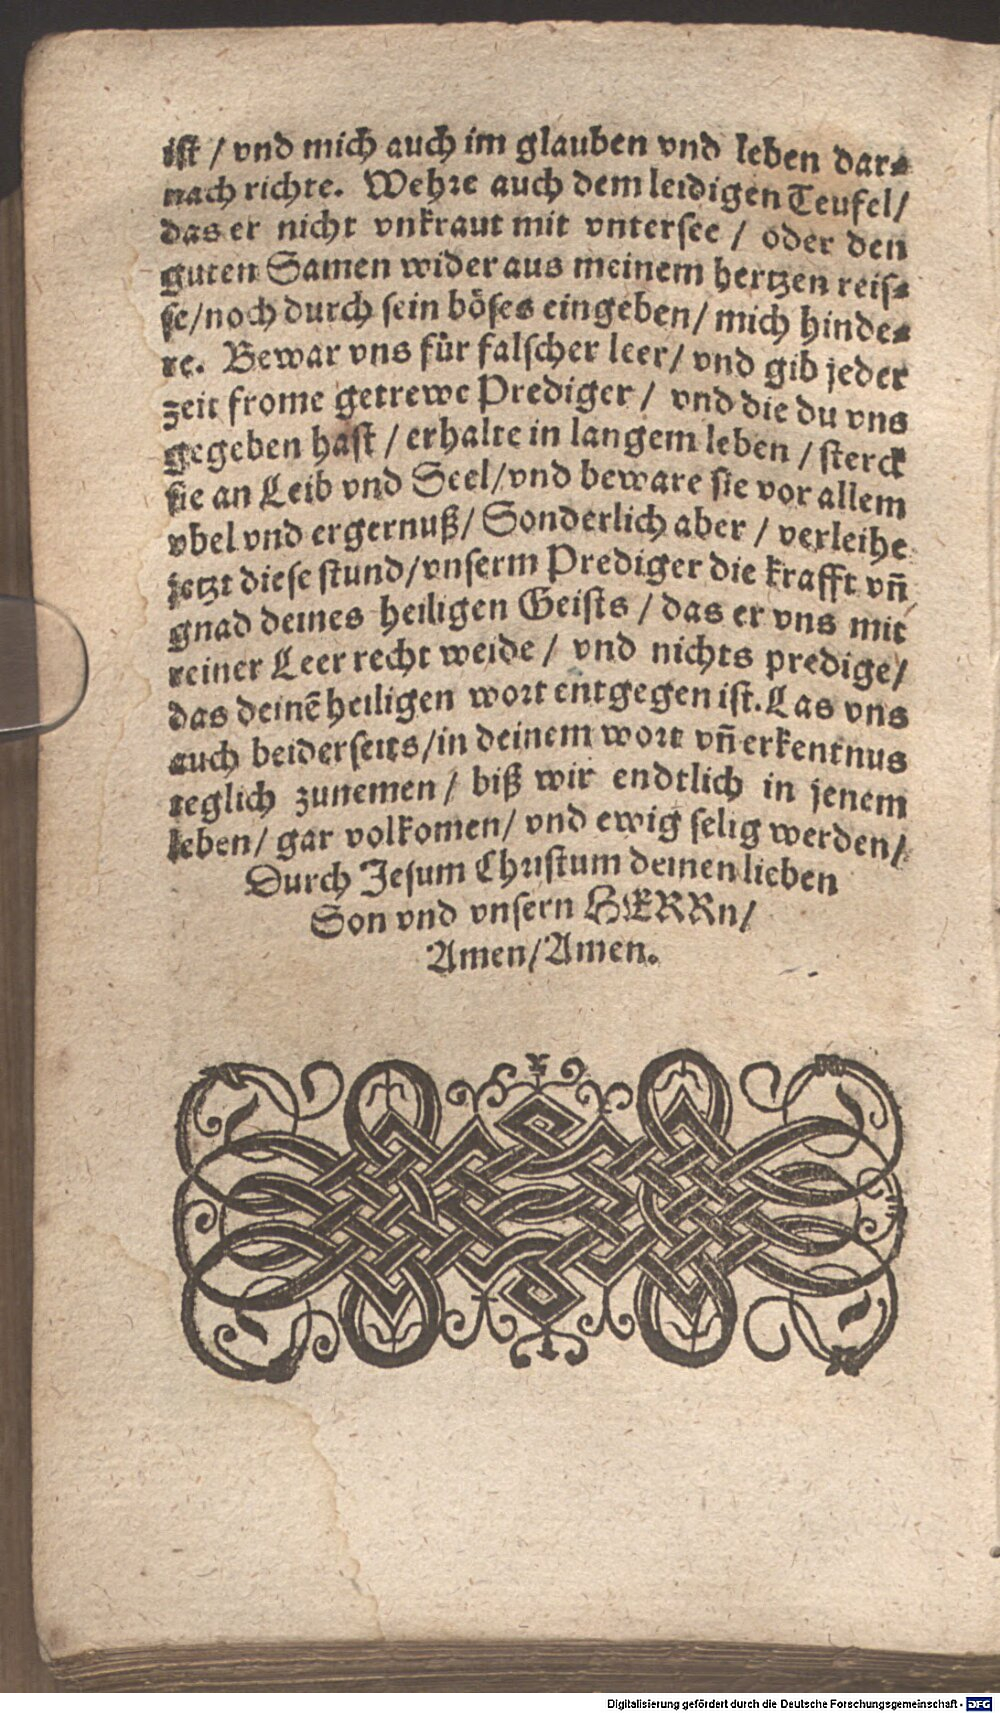 ist / vnd mich auch im glauben vnd leben dar-
nach richte. Wehre auch dem leidigen Teufel/
das er nicht vnkraut mit vntersee / oder den
guten Samen wider aus meinem hertzen reis-
se/noch durch sein böses eingeben/ mich hinde-
re. Bewar vns für falscher leer/ vnd gib jeder
zeit frome getrewe Prediger / vnd die du vns
gegeben hast / erhalte in langem leben / sterck
sie an Leib vnd Seel/vnd beware sie vor allem
vbel vnd ergernuß/ Sonderlich aber / verleihe
jetzt diese stund/vnserm Prediger die krafft vñ
gnad deines heiligen Geists / das er vns mit
reiner Leer recht weide / vnd nichts predige/
das deinẽ heiligen wort entgegen ist. Las vns
auch beiderseits/in deinem wort vñ erkentnus
teglich zunemen / biß wir endtlich in jenem
leben/ gar volkomen/ vnd ewig selig werden/
Durch Jesum Christum deinen lieben
Son vnd vnsern HERRn/
Amen/Amen.
Digitalisierung gefördert durch die Deutsche Forschungsgemeinschaft - DFG